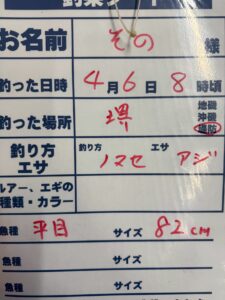 お名前 その 様
釣った日時 4月6日 8時頃
釣った場所 堺 地磯 沖磯 堤防
釣り方 エサ 釣り方 ノマセ エサ アジ
ルアー、エギの種類・カラー
魚種 平目 サイズ 82cm
魚種 サイズ
魚種 サイズ